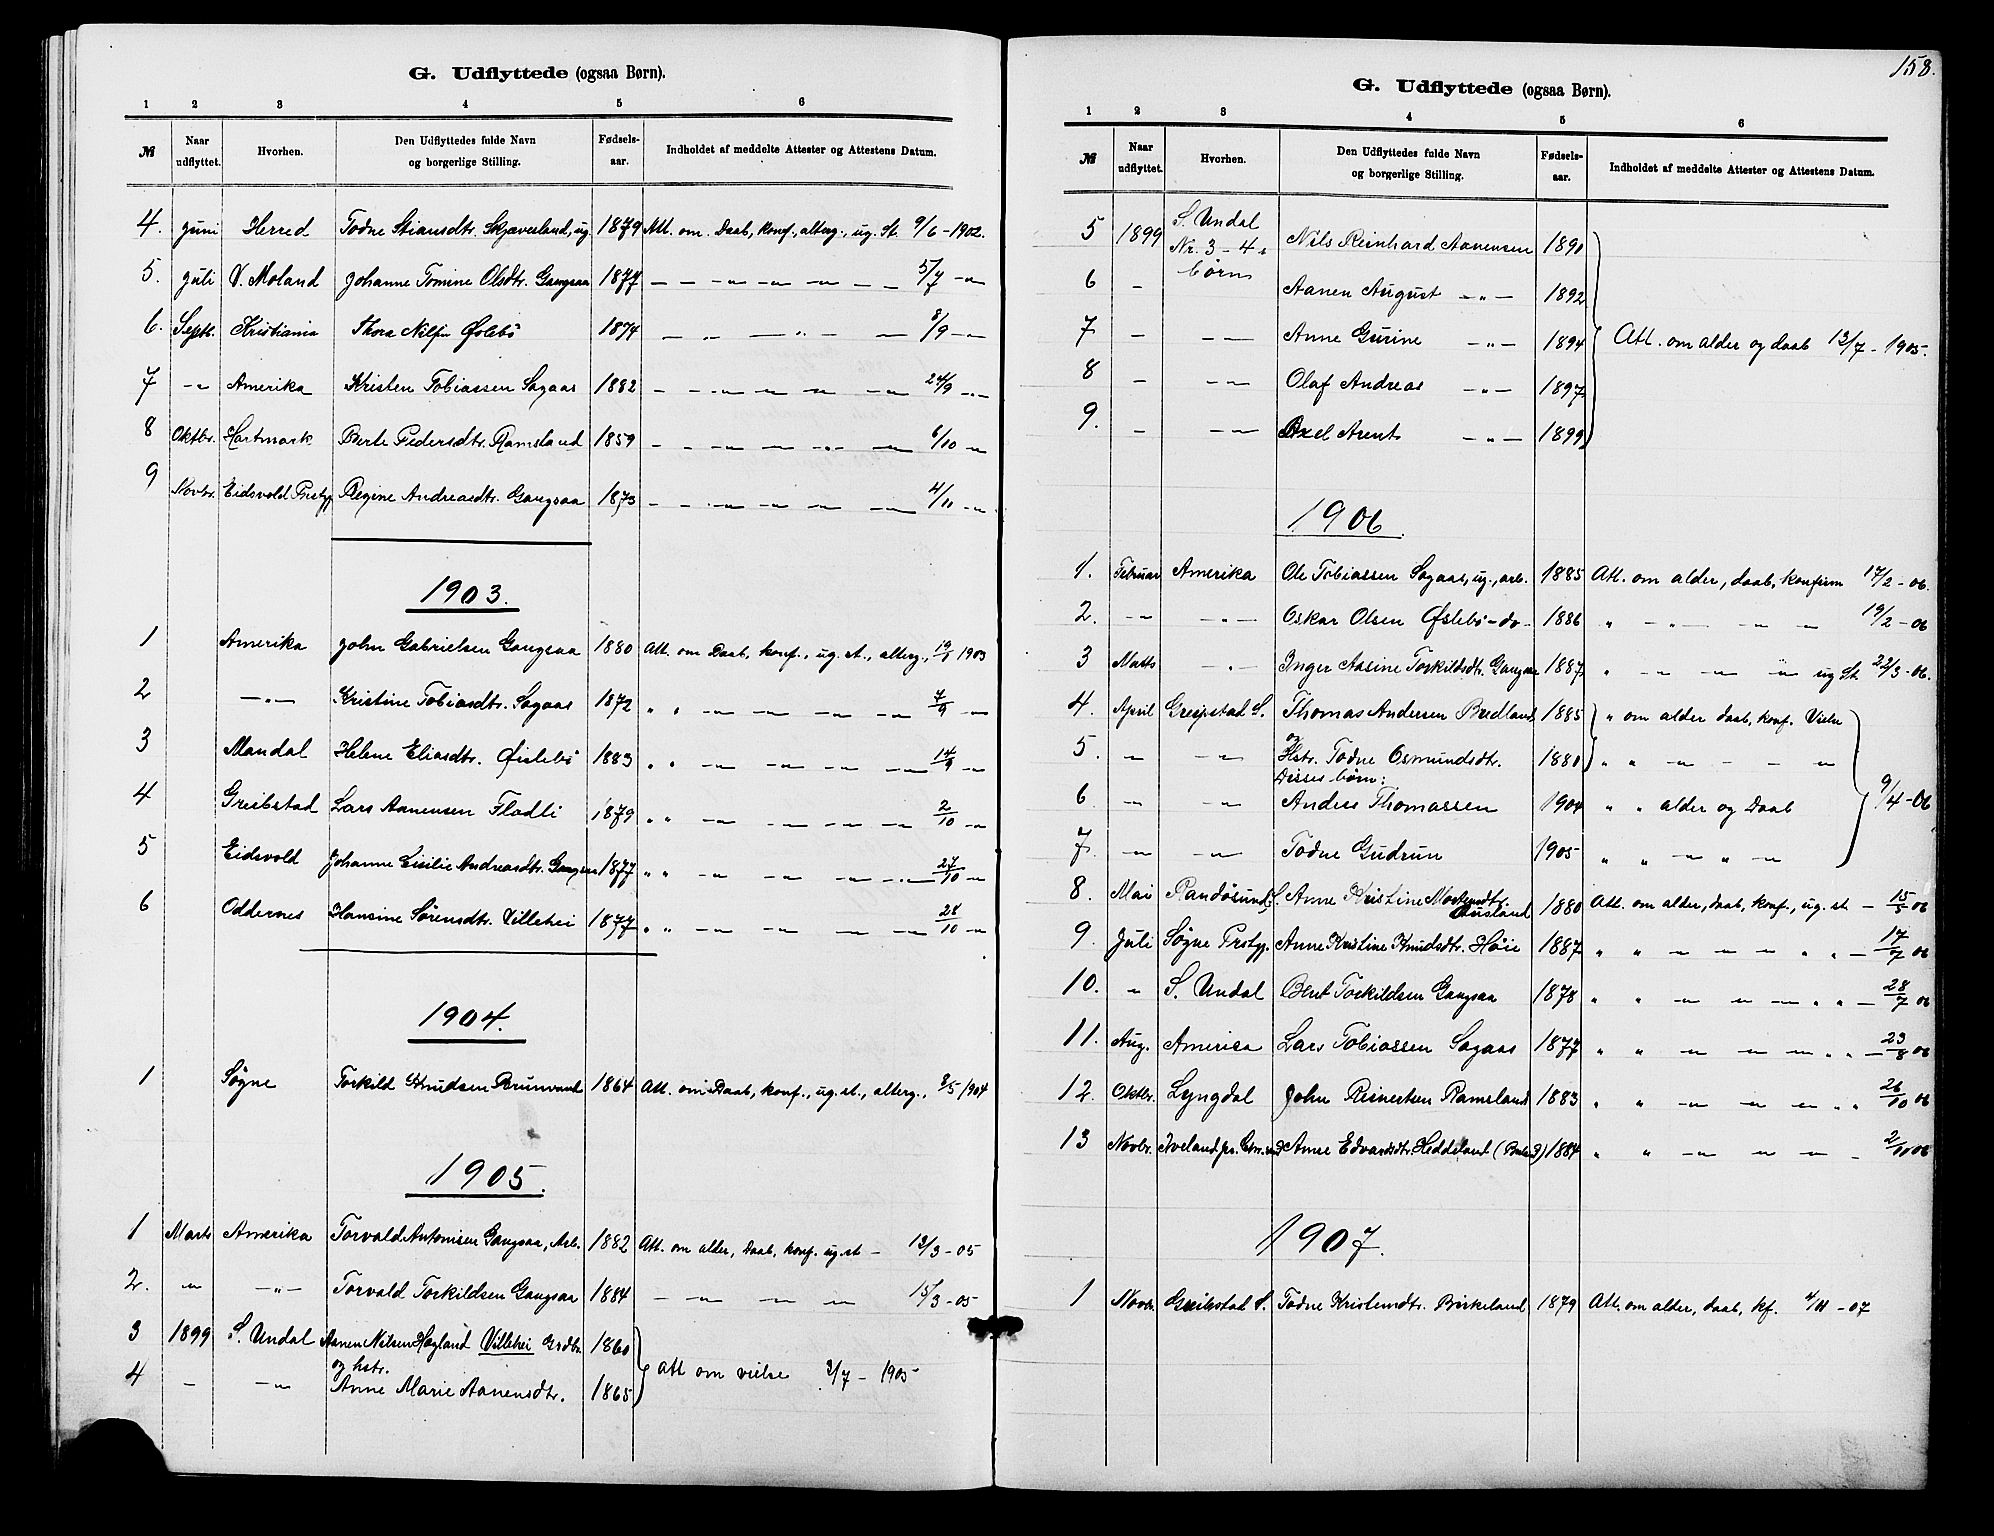 G. Udflyttede (ogsaa Børn).
1 2 3 4 5 6
№ Naar udflyttet. Hvorhen. Den Udflyttedes fulde Navn og borgerlige Stilling. Fødsels-aar. Indholdet af meddelte Attester og Attestens Datum.
4. Juni Herred Todne Stiansdtr. Skjævesland, ug. 1879 Att. om Daab, konf., alterg., ug. St. 9/6 - 1902.
5. Juli V. Moland Johanne Tomine Olsdtr. Gangsaa 1877 — — „ — „ — „ — — 5/7 — „
6. Septb. Kristiania Thora Nilsen Øslebø 1874 — „ — — „ — — 8/9 — „ —
7 — „ Amerika Kristen Tobiassen Sagaas 1882 — — „ — „ — „ — „ 24/9 — „ —
8 Oktbr. Hartmark Berte Pedersdtr. Ramsland 1859 — — „ — „ — „ — „ 6/10 — „
9 Novbr. Eidsvold Prstgj. Regine Andreasdtr. Gangsaa 1873 — — „ — „ — „ — „ 4/11 — „
1903.
1 Amerika John Gabrielsen Gangsaa 1880 Att. om Daab, konf., ug. st., alterg., 1903
2 — „ — Kristine Tobiasdtr. Sagaas 1872 „ „ — „ — „ — „ — „ 7/9 — „
3 Mandal Helene Eliasdtr. Øislebø 1883 „ „ — „ — „ — „ — „ 14/9 — „
4 Greibstad Lars Aanensen Flodli 1879 „ „ — „ — „ — „ — „ 2/10 — „
5 Eidsvold Johanne Cecilie Andreasdtr. Gangsaa 1877 „ „ — „ — „ — „ — „ 27/10 — „
6 Oddernes Hansine Sørensdtr. Villehei 1877 „ „ — „ — „ — „ — „ 28/10 — „
1904.
1 Søgne Torkild Knudsen Brunvand 1864 Att. om Daab, konf., ug. st., alterg., 3/5 1904
1905.
1 Marts Amerika Torvald Antonisen Gangsaa, Arb. 1882 Att. om alder, Daab, konf. ug. st — 13/3 - 05
2. „ — „ — Torvald Torkildsen Gangsaa 1884 — „ — „ — „ 15/3 - 05
3 1899 S. Undal Aanen Nilsen Høgland Villehei Grdbr. 1860
og hstr.
4 — — „ Anne Marie Aanensdtr. 1865 Att om vielse 3/7 - 1905
158.
G. Udflyttede (ogsaa Børn).
1 2 3 4 5 6
№ Naar udflyttet. Hvorhen. Den Udflyttedes fulde Navn og borgerlige Stilling. Fødsels-aar. Indholdet af meddelte Attester og Attestens Datum.
5 1899 S. Undal Nils Reinhard Aanensen 1890
Nr. 3 - 4s
børn
6 — Aanen August — „ — 1892
7 — — — Anne Gurine — „ — 1894 Att. om alder og daab 13/7 - 1905.
8 — — „ Olaf Andreas — „ — 1897
9. — — „ Axel Arent — „ — 1899
1906.
1. Februar Amerika Ole Tobiassen Sagaas, ug., arb. 1885 Att. om alder, daab, konfirm 17/2 - 06.
2. — „ — „ — Oskar Olsen Øslebø - do - 1886 „ — „ — „ „ 19/2 - 06
3 Marts — „ — Inger Aasine Torkildsdtr. Gangsaa 1887 „ — „ — „ „ ug St. 22/3 - 06.
4. April Greipstad S. Thomas Andersen Bredland 1885 „ om alder daab, konf. Vielse
og
5. „ — „ Hstr. Todne Osmundsdtr. 1880 „ „ — „ — — „
Disses børn:
6 „ — „ Anders Thomassen 1904 „ „ alder og Daab 9/4 - 06
7. „ — „ Todne Gudrun 1905 „ „ — „ „ — „
8. Mai Randøsund S. Anne Kristine Mortensdtr. Ausland 1880 Att. om alder, daab, konf., ug. st — 15/5 06
9. Juli Søgne Prstgj. Anne Kristine Knudsdtr. Høie 1887 „ „ — „ — „ — „ „ „ — 17/7 06
10. „ S. Undal Bent Torkildsen Gangsaa 1878 „ „ — „ — „ — „ „ „ — 28/7 06
11. Aug. America Lars Tobiassen Sagaas 1877 „ „ — „ — „ — „ „ „ — 23/8 06
12. Oktbr. Lyngdal John Reinertsen Ramsland 1883 „ „ — „ — „ — „ „ „ 26/10 06
13 Novbr. Iveland Anne Edvardsdtr. Heddeland 1884 „ „ — „ — „ — „ — 2/11 06
1907.
1 Novbr. Greibstad S. Todne Kristensdtr. Birkeland 1879 Att. om alder, daab, kf. 4/11 - 07